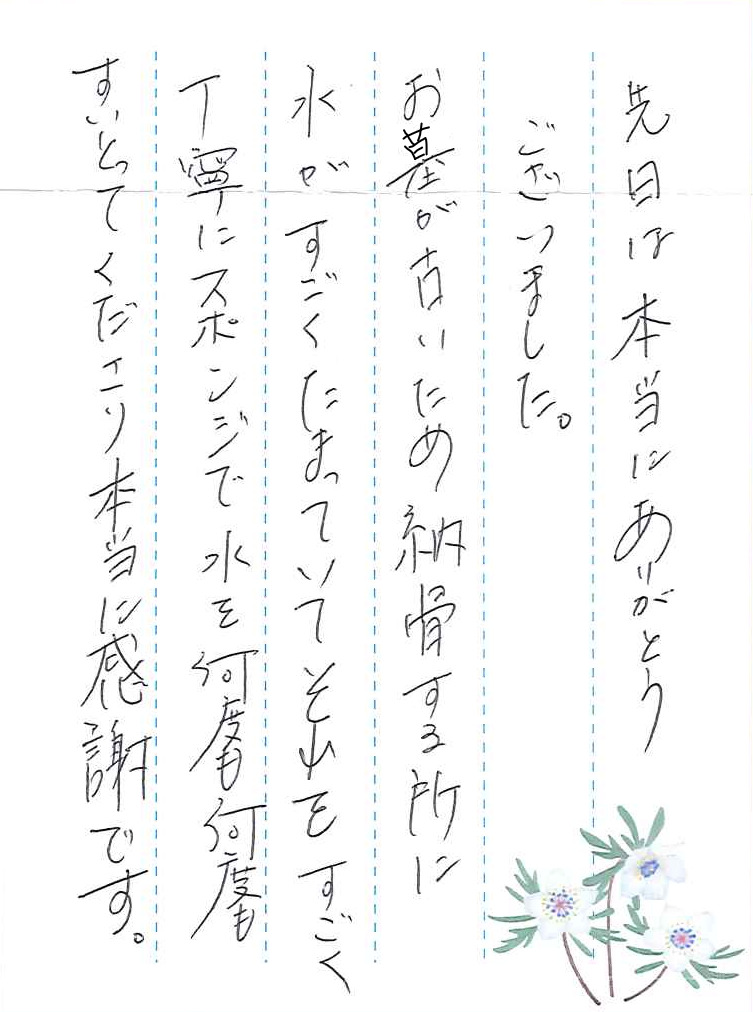 先日は本当にありがとう
ございました。
お墓が古いため納骨する所に
水がすごくたまっていてそれをすごく
丁寧にスポンジで水を何度も何度も
すいとってくださり本当に感謝です。